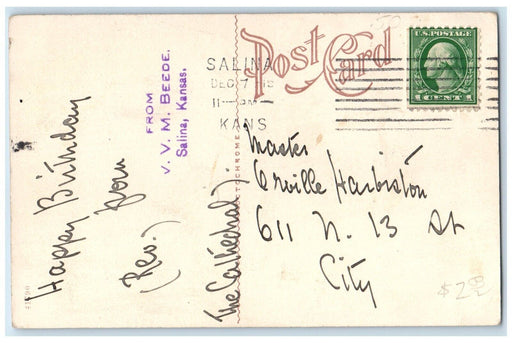 Post Card
U.S. POSTAGE
1 CENT 1
SALINA
DEC 7
11
KANS
FROM
V. V. M. BEEDE.
Salina, Kansas.
Happy Birthday
from
(Rev.)
(The Cathedral).
Master
Orville Harbiston
611 N. 13 St
City